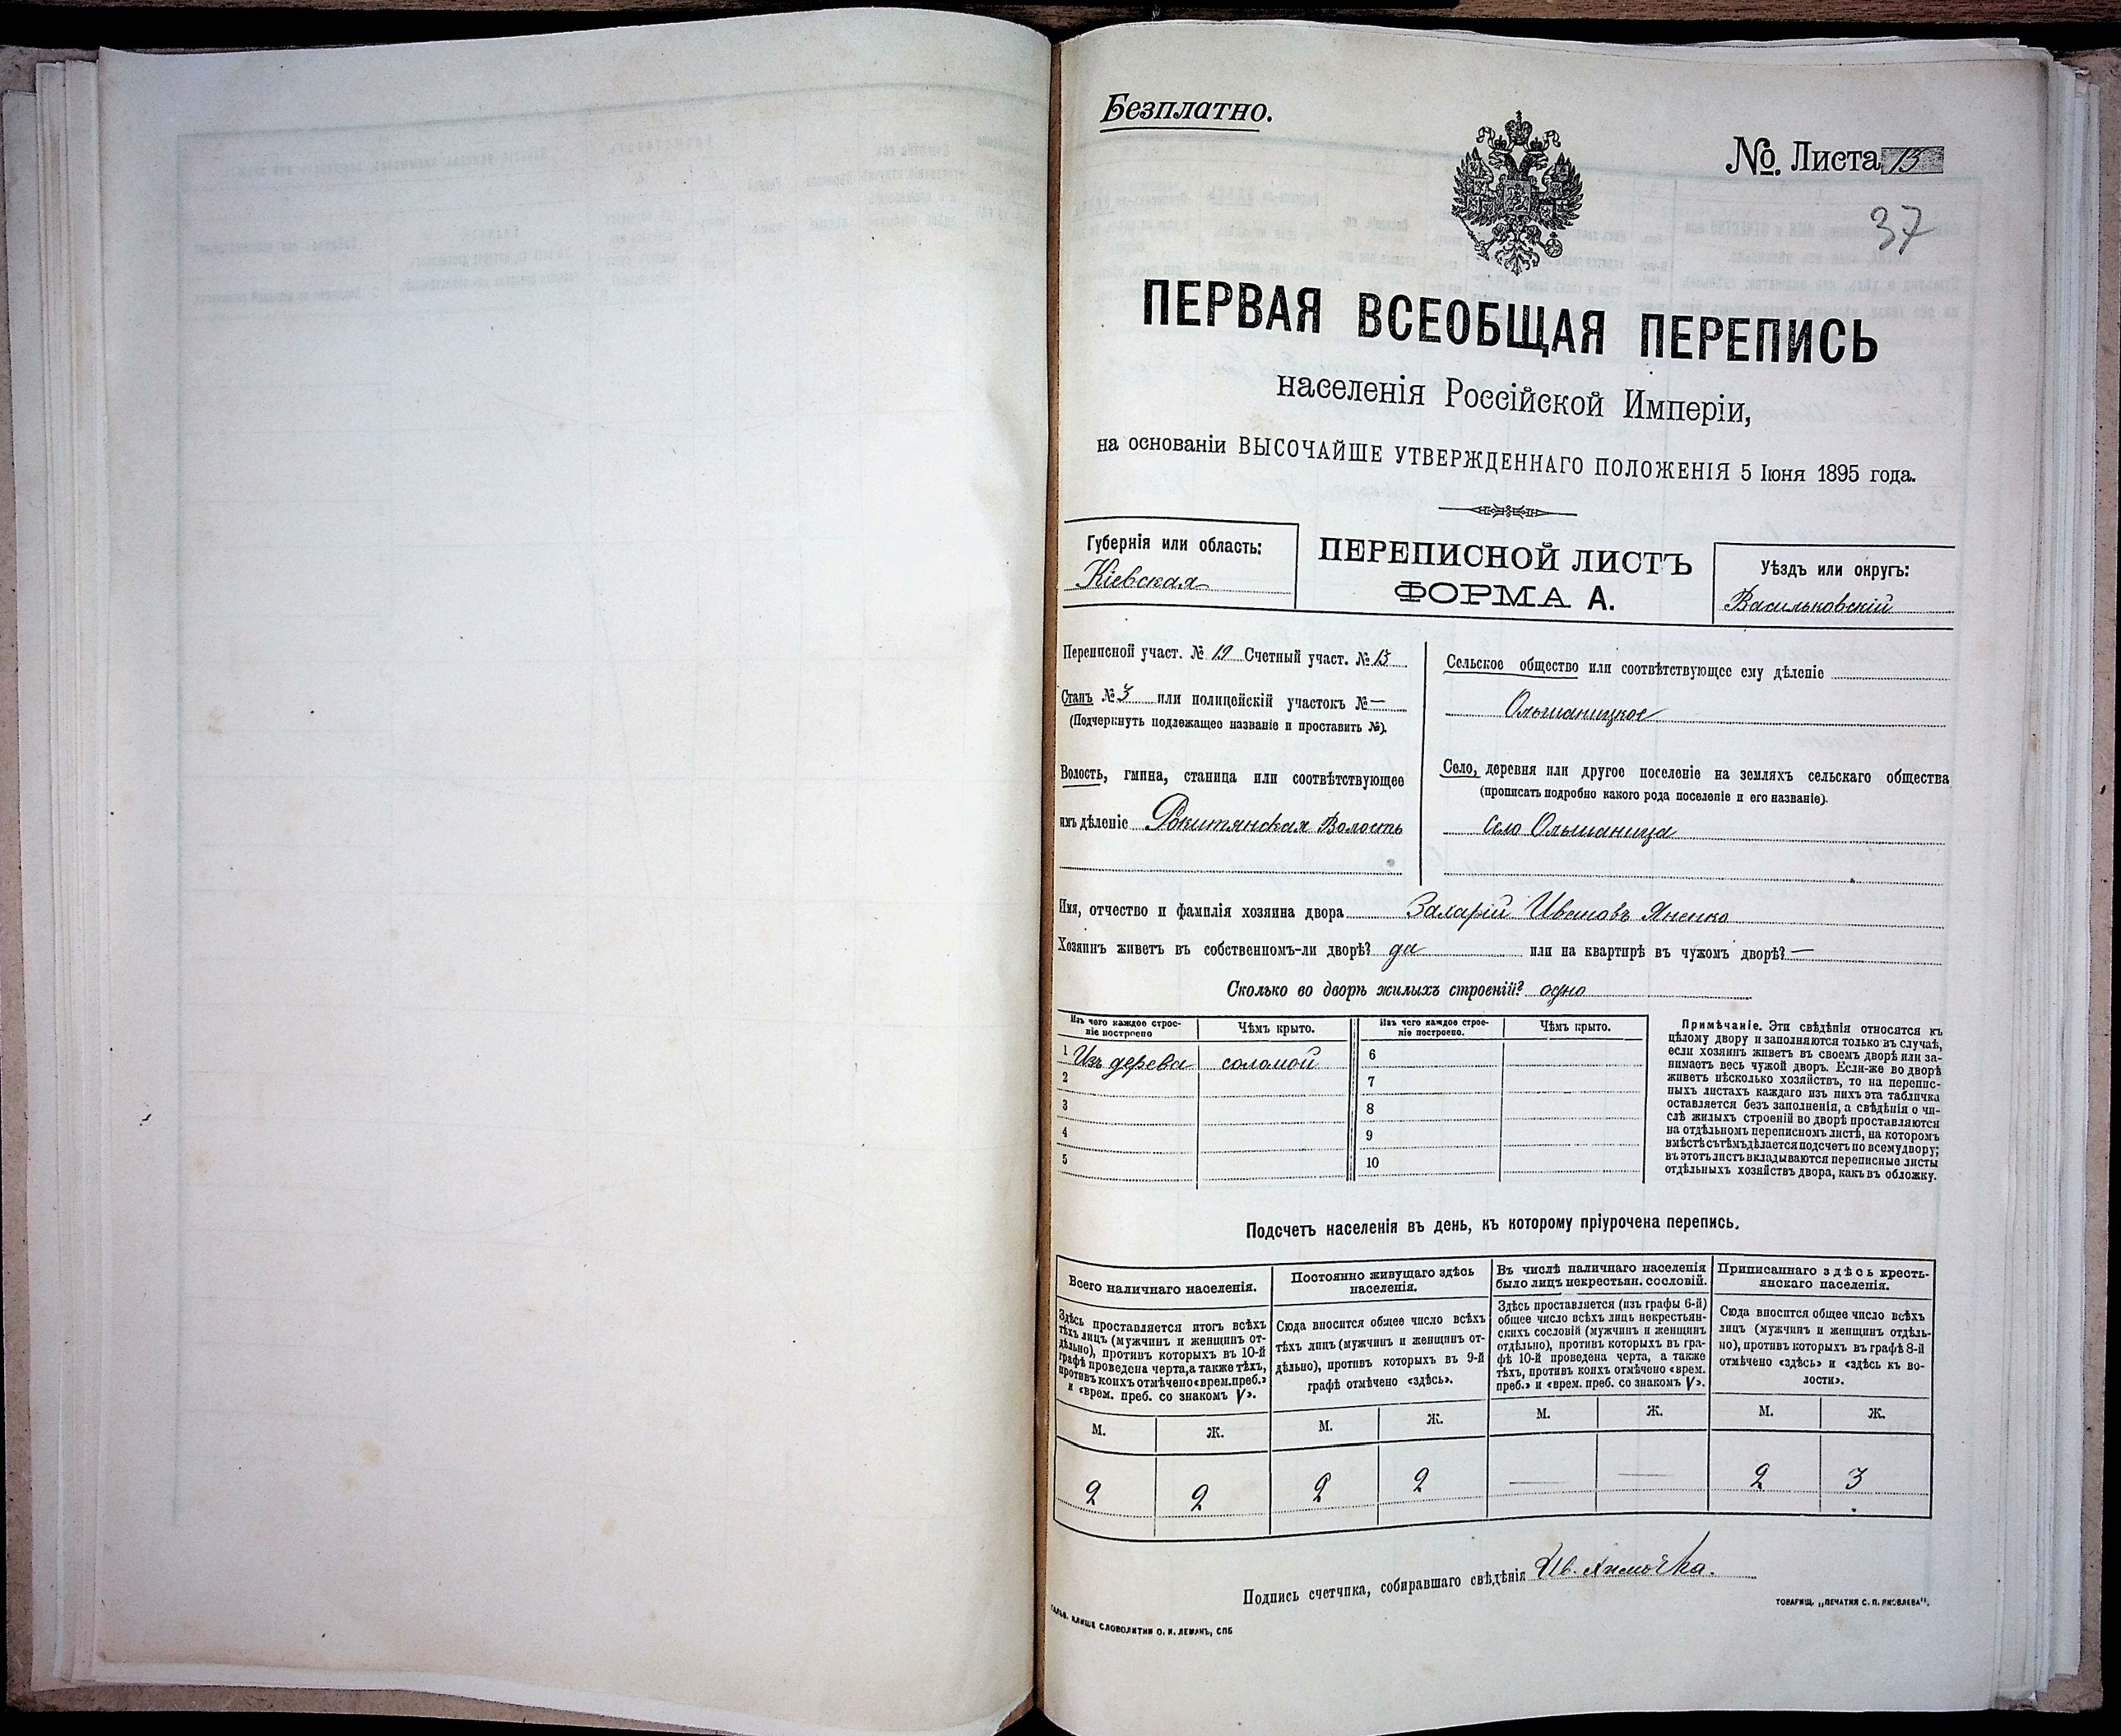 Безплатно.
№. Листа 13
37
ПЕРВАЯ ВСЕОБЩАЯ ПЕРЕПИСЬ
населенія Россійской Имперіи,
на основаніи ВЫСОЧАЙШЕ УТВЕРЖДЕННАГО ПОЛОЖЕНІЯ 5 Іюня 1895 года.
Губернія или область:
Кіевская
ПЕРЕПИСНОЙ ЛИСТЪ
ФОРМА А.
Уѣздъ или округъ:
Васильковскій
Переписной участ. № 19 Счетный участ. № 13
Станъ № 3 или полицейскій участокъ № —
(Подчеркнуть подлежащее названіе и проставить №).
Волость, гмина, станица или соотвѣтствующее
имъ дѣленіе Рокитянская Волость
Сельское общество или соотвѣтствующее ему дѣленіе
Ольшаницкое
Село, деревня или другое поселеніе на земляхъ сельскаго общества
(прописать подробно какого рода поселеніе и его названіе).
Село Ольшаница
Имя, отчество и фамилія хозяина двора Захарій Ивановъ Яненко
Хозяинъ живетъ въ собственномъ-ли дворѣ? да или на квартирѣ въ чужомъ дворѣ? —
Сколько во дворѣ жилыхъ строеній? одно
Изъ чего каждое строе-
ніе построено
Чѣмъ крыто.
Изъ чего каждое строе-
ніе построено.
Чѣмъ крыто.
1 Изъ дерева соломой 6
2 7
3 8
4 9
5 10
Примѣчаніе. Эти свѣдѣнія относятся къ
цѣлому двору и заполняются только въ случаѣ,
если хозяинъ живетъ въ своемъ дворѣ или за-
нимаетъ весь чужой дворъ. Если-же во дворѣ
живетъ нѣсколько хозяйствъ, то на перепис-
ныхъ листахъ каждаго изъ нихъ эта табличка
оставляется безъ заполненія, а свѣдѣнія о чи-
слѣ жилыхъ строеній во дворѣ проставляются
на отдѣльномъ переписномъ листѣ, на которомъ
вмѣстѣ съ тѣмъ дѣлается подсчетъ по всему двору;
въ этотъ листъ вкладываются переписные листы
отдѣльныхъ хозяйствъ двора, какъ въ обложку.
Подсчетъ населенія въ день, къ которому пріурочена перепись.
Всего наличнаго населенія.
Здѣсь проставляется итогъ всѣхъ
тѣхъ лицъ (мужчинъ и женщинъ от-
дѣльно), противъ которыхъ въ 10-й
графѣ проведена черта, а также тѣхъ,
противъ коихъ отмѣчено «врем. преб.»
и «врем. преб. со знакомъ V».
М. Ж.
2 2
Постоянно живущаго здѣсь
населенія.
Сюда вносится общее число всѣхъ
тѣхъ лицъ (мужчинъ и женщинъ от-
дѣльно), противъ которыхъ въ 9-й
графѣ отмѣчено «здѣсь».
М. Ж.
2 2
Въ числѣ наличнаго населенія
было лицъ некрестьян. сословій.
Здѣсь проставляется (изъ графы 6-й)
общее число всѣхъ лицъ некрестьян-
скихъ сословій (мужчинъ и женщинъ
отдѣльно), противъ которыхъ въ гра-
фѣ 10-й проведена черта, а также
тѣхъ, противъ коихъ отмѣчено «врем.
преб.» и «врем. преб. со знакомъ V».
М. Ж.
— —
Приписаннаго здѣсь кресть-
янскаго населенія.
Сюда вносится общее число всѣхъ
лицъ (мужчинъ и женщинъ отдѣль-
но), противъ которыхъ въ графѣ 8-й
отмѣчено «здѣсь» и «здѣсь къ во-
лости».
М. Ж.
2 3
Подпись счетчика, собиравшаго свѣдѣнія Ив.
ГАЛЬВ. КЛИШЕ СЛОВОЛИТНИ О. И. ЛЕМАНЪ, СПБ
ТОВАРИЩ. „ПЕЧАТНЯ С. П. ЯКОВЛЕВА".